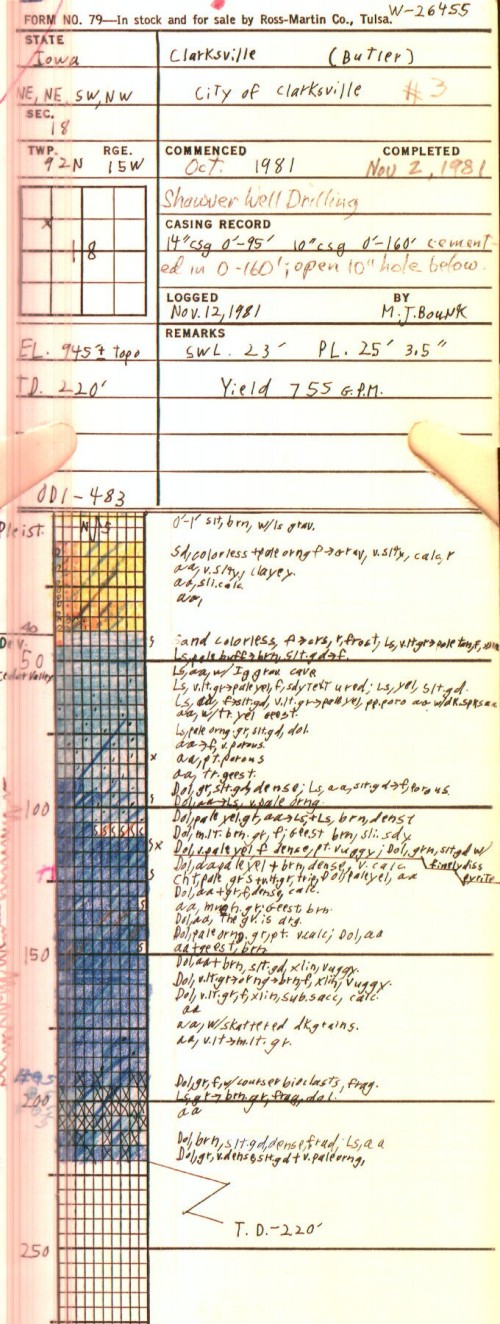 W-26455
FORM NO. 79—In stock and for sale by Ross-Martin Co., Tulsa.
STATE
Iowa
Clarksville (Butler)
NE, NE, SW, NW
City of Clarksville #3
SEC.
18
TWP. RGE.
92N 15W
COMMENCED COMPLETED
Oct. 1981 Nov 2, 1981
Shawver Well Drilling
CASING RECORD
14"csg 0'-95' 10"csg 0'-160' cement-
ed in 0-160'; open 10" hole below.
x
18
LOGGED BY
Nov. 12, 1981 M.J. Bounk
REMARKS
EL. 945± topo
SWL. 23' PL. 25' 3.5"
T.D. 220'
Yield 755 G.P.M.
001-483
Pleist.
N S
0'-1' slt, brn, w/ls grav.
Sd, colorless + pale orng f→grav, v.slty, calc, r
aa, v.slty, clayey.
aa, sli.calc
aa,
40
Dev.
Sand colorless, f→crs, r, frost, Ls, v.lt.gr→pale tan, f,
50
Ls, pale buff→brn, slt.gd→f.
Cedar Valley
Ls, aa, w/ Ig grav cave
Ls, v.lt.gr→pale yel, f, sdy textured; Ls, yel, slt.gd.
Ls, aa, f→slt.gd, v.lt.gr→pale yel, pp.poro aa w/dk.spks aa
aa, w/tr.yel geest.
Ls, pale orng.gr, slt.gd, dol.
aa→f, v.porous.
aa, pt.porous
aa, tr.geest.
Dol, gr, slt.gd, dense; Ls, aa, slt.gd→f, porous.
Dol, aa→Ls, v.pale orng.
100
Dol, pale yel.gr, aa→Ls+Ls, brn, dense
Dol, m.lt.brn.gr, f; Geest brn, sli.sdy
Dol, v.pale yel f dense, pt.vuggy; Dol, grn, slt.gd w/
finely diss
pyrite
Dol, aa pale yel + brn, dense, v.calc
Cht pale gr s + wt.gr, trip, Dol, pale yel, aa
Dol, aa + gr, f, dense, calc.
aa, much.gr; Geest brn.
Dol, aa, the gr. is arg.
Dol, pale orng, gr, pt. v.calc; Dol, aa
150
aa + geest, brn
Dol, aa + brn, slt.gd, xlin, vuggy.
Dol, v.lt.gr→orng→brn, f, xlin, vuggy.
Dol, v.lt.gr, f, xlin, sub.sacc, calc.
aa
aa, w/skattered dk grains.
aa, v.lt→m.lt.gr.
Dol, gr, f, w/courser bioclasts, frag.
200
Ls, gr→brn.gr, frag, dol.
aa
Dol, brn, slt.gd, dense, frag; Ls, aa
Dol, gr, v.dense, slt.gd + v.pale orng,
T.D.-220'
250